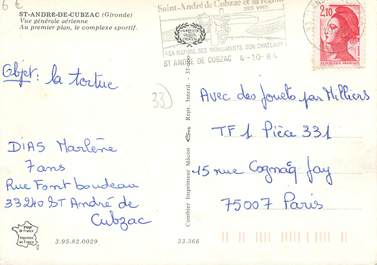 6 €
ST-ANDRE-DE-CUBZAC (Gironde)
Vue générale aérienne
Au premier plan, le complexe sportif.
Objet: la tortue
33)
DIAS Marlène
7 ans
Rue Font boudeau
33240 ST André de
Cubzac
3.95.82.0029
33.366
Combier Imprimeur Mâcon
Repr. Interd.
Saint-André de Cubzac et sa région
SES VINS
LA NATURE SES MONUMENTS SON CHATEAU
ST ANDRE DE CUBZAC 4-10-84
2,10
Avec des Jouets par Milliers
TF1 Pièce 331
15 rue Cognaq Jay
75007 Paris